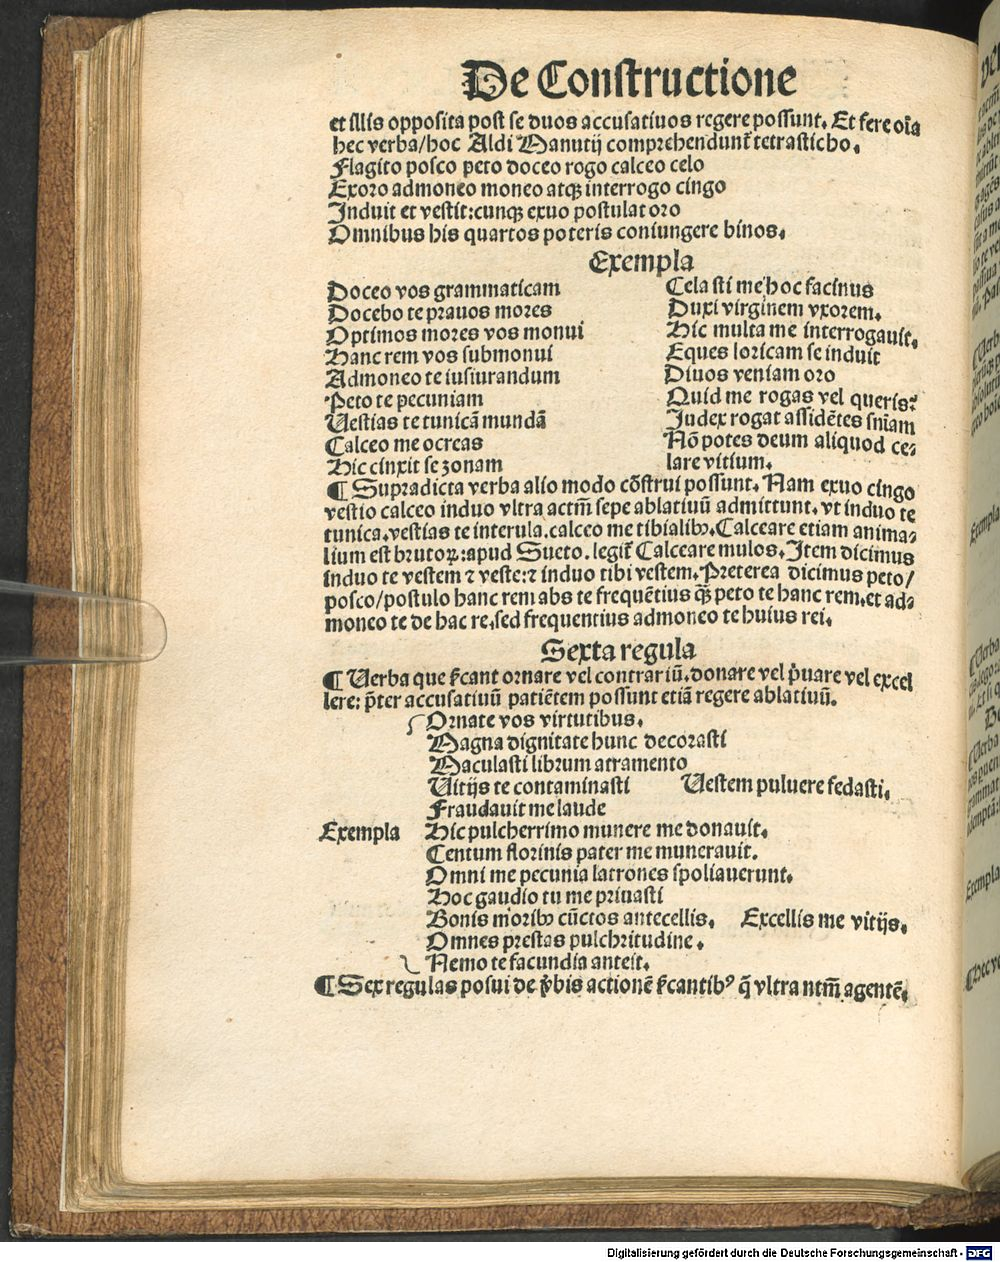 De Constructione
et illis opposita post se duos accusatiuos regere possunt. Et fere oīa
hec verba/hoc Aldi Manutij comprehendunt̄ tetrasticho.
Flagito posco peto doceo rogo calceo celo
Exoro admoneo moneo atqꝫ interrogo cingo
Induit et vestit:cunqꝫ exuo postulat oro
Omnibus his quartos poteris coniungere binos.
Exempla
Doceo vos grammaticam
Docebo te prauos mores
Optimos mores vos monui
Hanc rem vos submonui
Admoneo te iusiurandum
Peto te pecuniam
Uestias te tunicā mundā
Calceo me ocreas
Hic cinxit se zonam
Cela sti me hoc facinus
Duxi virginem vxorem.
Hic multa me interrogauit.
Eques loricam se induit
Diuos veniam oro
Quid me rogas vel queris?
Judex rogat assidētes sniam
Nō potes deum aliquod ce⸗
lare vitium.
¶ Supradicta verba alio modo cōstrui possunt. Nam exuo cingo
vestio calceo induo vltra actm̄ sepe ablatiuū admittunt. vt induo te
tunica.vestias te interula.calceo me tibialibꝫ.Calceare etiam anima⸗
lium est brutoꝝ:apud Sueto.legit̄ Calceare mulos.Item dicimus
induo te vestem ⁊ veste:⁊ induo tibi vestem.Preterea dicimus peto/
posco/postulo hanc rem abs te frequētius qꝫ̄ peto te hanc rem.et ad⸗
moneo te de hac re.sed frequentius admoneo te huius rei.
Sexta regula
¶ Uerba que sc̄ant ornare vel contrariū.donare vel p̄uare vel excel
lere: p̄ter accusatiuū patiētem possunt etiā regere ablatiuū.
Ornate vos virtutibus.
Magna dignitate hunc decorasti
Maculasti librum atramento
Uitijs te contaminasti Uestem puluere fedasti.
Fraudauit me laude
Exempla Hic pulcherrimo munere me donauit.
Centum florinis pater me munerauit.
Omni me pecunia latrones spoliauerunt.
Hoc gaudio tu me priuasti
Bonis moribꝫ cūctos antecellis. Excellis me vitijs.
Omnes prestas pulchritudine.
Nemo te facundia anteit.
¶ Sex regulas posui de v̄bis actionē sc̄antibꝰ q̄ vltra ntm̄ agentē.
Digitalisierung gefördert durch die Deutsche Forschungsgemeinschaft - DFG